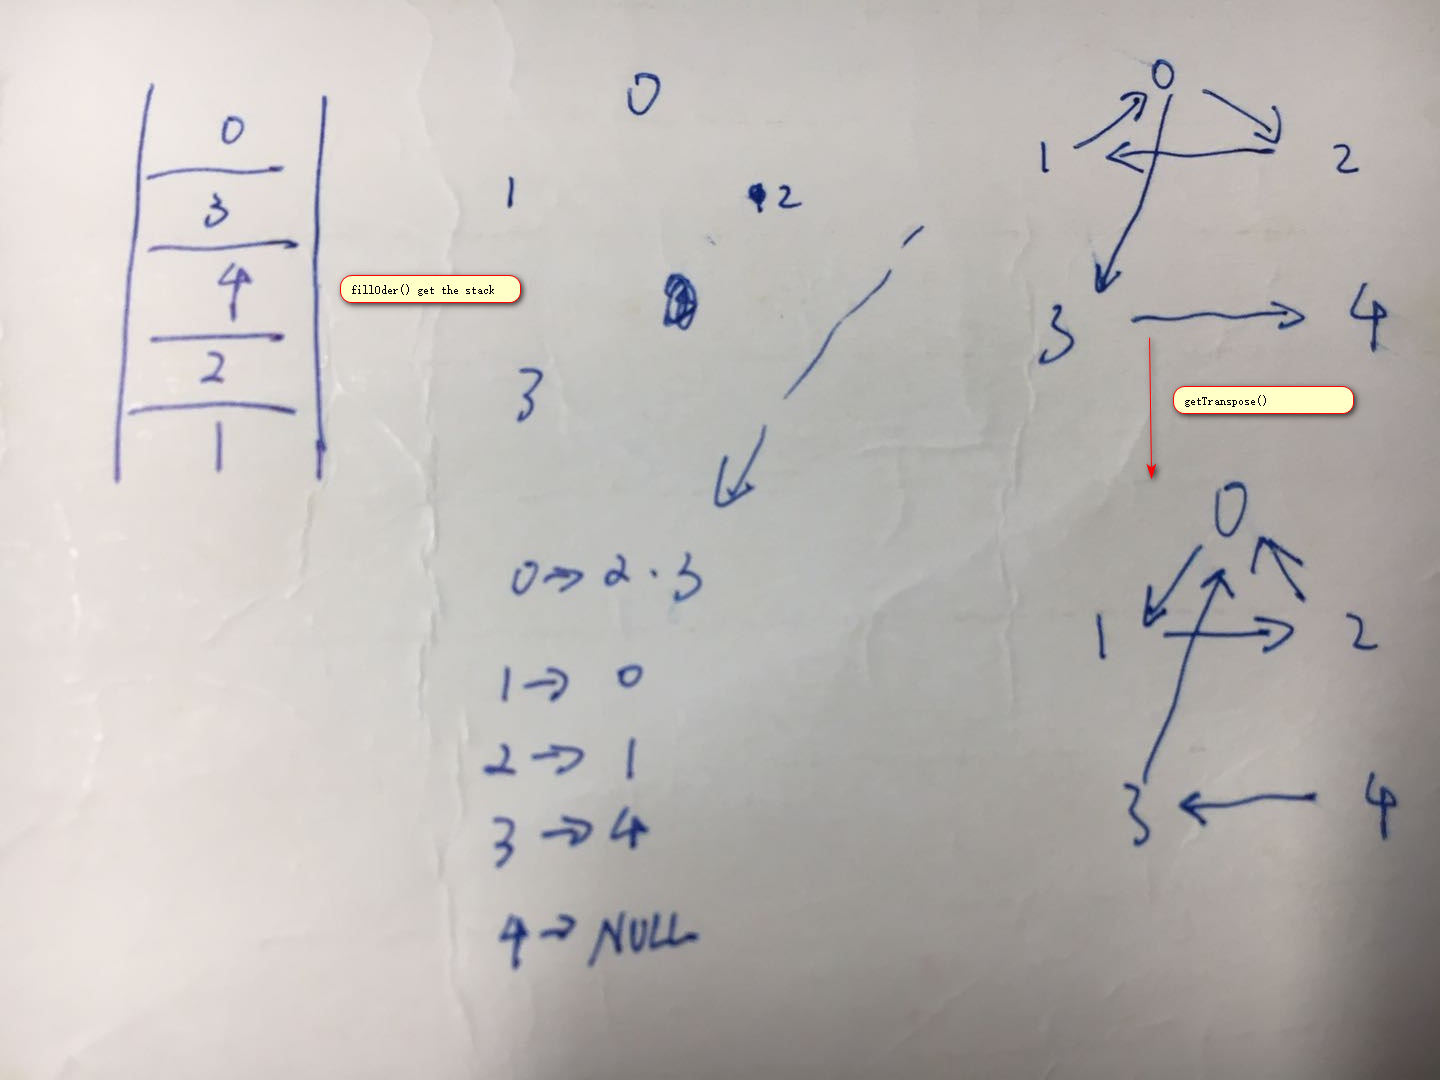 0
3
4
2
1
fillOder() get the stack
0
1 2
3
0→2·3
1→0
2→1
3→4
4→NULL
0
1 2
3 4
getTranspose()
0
1 2
3 4